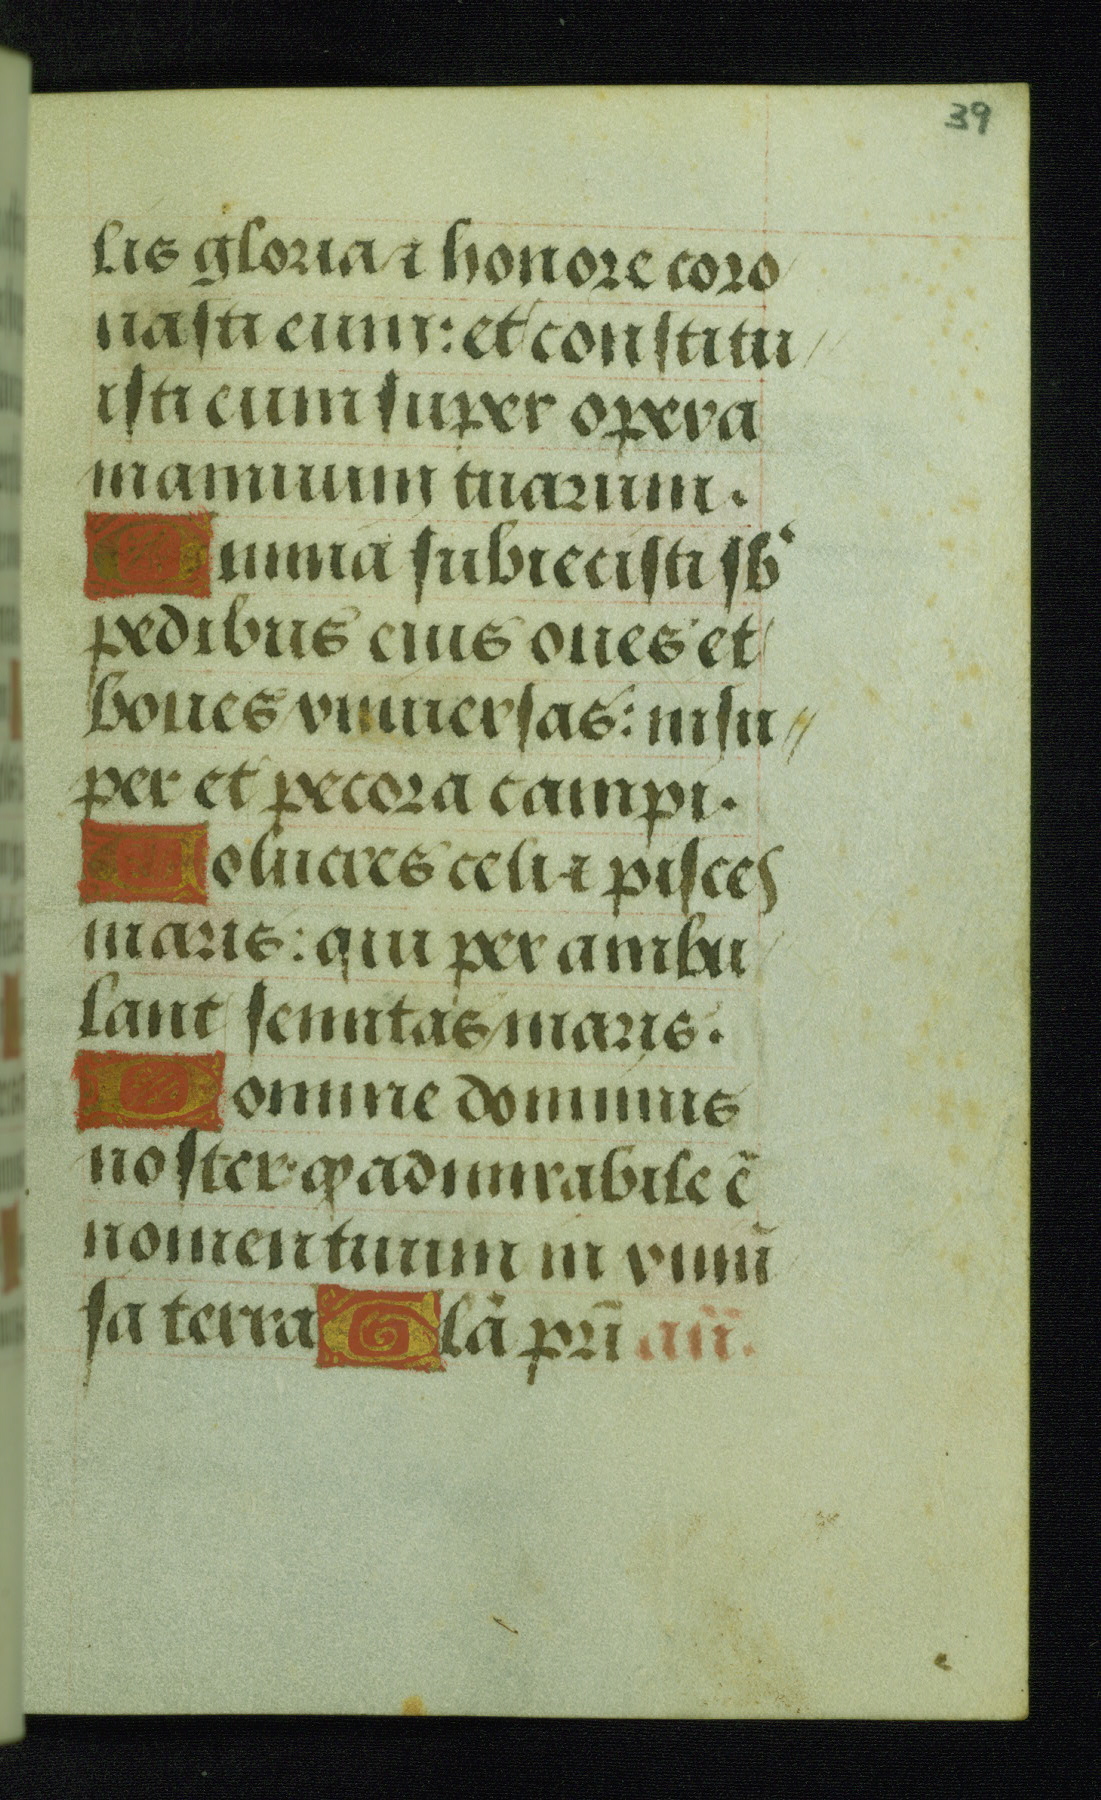 39
lis gloria ⁊ honore coro
nasti eum: et constitu
isti eum super opera
manuum tuarum.
Omnia subiecisti sb'
pedibus eius oues et
boues vniuersas: insu
per et pecora campi.
Volucres celi ⁊ pisces
maris: qui perambu
lant semitas maris.
Domine dominus
noster ꝙ admirabile ē
nomen tuum in vniū
sa terra Glā pr̄i añ.